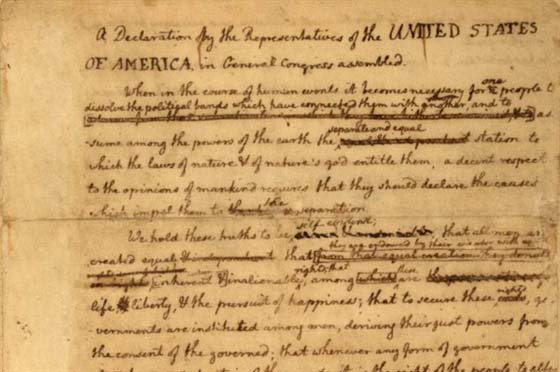 A Declaration by the Representatives of the UNITED STATES
OF AMERICA, in General Congress assembled.
When in the course of human events it becomes necessary for one people to
dissolve the political bands which have connected them with another, and to
as
separate and equal
sume among the powers of the earth the station to
which the laws of nature & of nature's god entitle them, a decent respect
to the opinions of mankind requires that they should declare the causes
which impel them to the separation.
self-evident;
We hold these truths to be that all men are
they are endowed by their creator with
created equal & independant; that from that equal creation they derive
rights; that these
inherent & inalienable among which are
life liberty, & the pursuit of happiness; that to secure these rights, go
vernments are instituted among men, deriving their just powers from
the consent of the governed; that whenever any form of government
it is the right of the people to